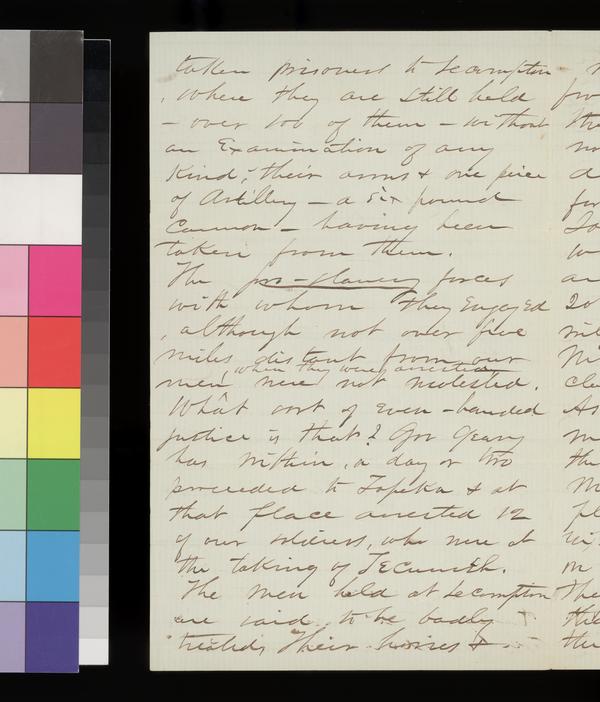 taken prisoners to Lecompton
, where they are still held
- over 100 of them - without
an Examination of any
Kind; their arms & one piece
of Artillery - a six pound
Cannon - having been
taken from them.
The pro-slavery forces
with whom they Engaged
, although not over five
miles distant from our
men, when they were arrested
were not molested.
What sort of even-handed
justice is that? Gov Geary
has within, a day or two
proceeded to Topeka & at
that place arrested 12
of our soldiers, who were at
the taking of Tecumseh.
The men held at Lecompton
are said to be badly
treated, their horses &
20
As
the